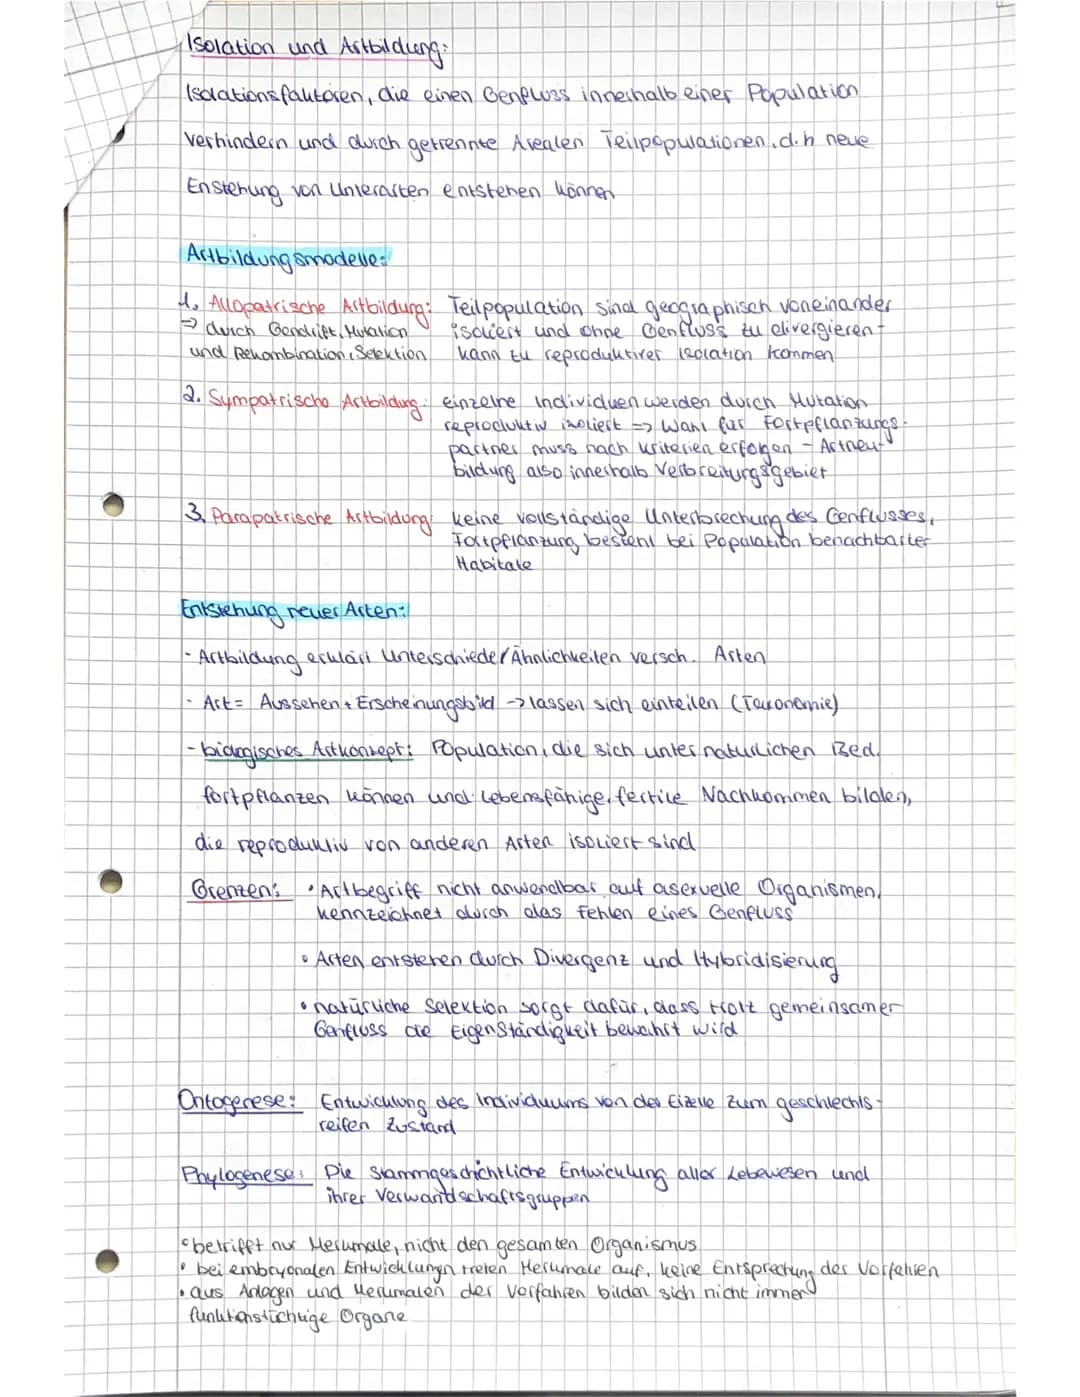 Isolation und Artbildung:
Isolationsfaktoren, die einen Genfluss innerhalb einer Population
verhindern und durch getrennte Arealen Teilpopulationen, d.h neue
Enstehung von Unterarten entstehen können
Artbildungsmodelle:
1. Allopatrische Artbildung: Teilpopulation sind geographisch voneinander
=> durch Gendrift, Mutation isoliert und ohne Genfluss zu divergieren -
und Rekombination, Selektion kann zu reproduktiver Isolation kommen
2. Sympatrische Artbildung: einzelne Individuen werden durch Mutation
reproduktiv isoliert => Wahl für Fortpflanzungs-
partner muss nach Kriterien erfolgen - Artneu-
bildung also innerhalb Verbreitungsgebiet
3. Parapatrische Artbildung: keine vollständige Unterbrechung des Genflusses,
Fortpflanzung besteht bei Population benachbarter
Habitate
Entstehung neuer Arten:
- Artbildung erklärt Unterschiede/Ähnlichkeiten versch. Arten
- Art = Aussehen + Erscheinungsbild -> lassen sich einteilen (Taxonomie)
- biologisches Artkonzept: Population, die sich unter natürlichen Bed.
fortpflanzen können und lebensfähige, fertile Nachkommen bilden,
die reproduktiv von anderen Arten isoliert sind
Grenzen: • Artbegriff nicht anwendbar auf asexuelle Organismen,
kennzeichnet durch das Fehlen eines Genfluss
• Arten entstehen durch Divergenz und Hybridisierung
• natürliche Selektion sorgt dafür, dass trotz gemeinsamer
Genfluss die Eigenständigkeit bewahrt wird
Ontogenese: Entwicklung des Individuums von der Eizelle zum geschlechts-
reifen Zustand
Phylogenese: Die stammgeschichtliche Entwicklung aller Lebewesen und
ihrer Verwandschaftsgruppen
• betrifft nur Merkmale, nicht den gesamten Organismus
• bei embryonalen Entwicklungen treten Merkmale auf, keine Entsprechung der Vorfahren
• aus Anlagen und Merkmalen der Vorfahren bilden sich nicht immer
funktionstüchtige Organe